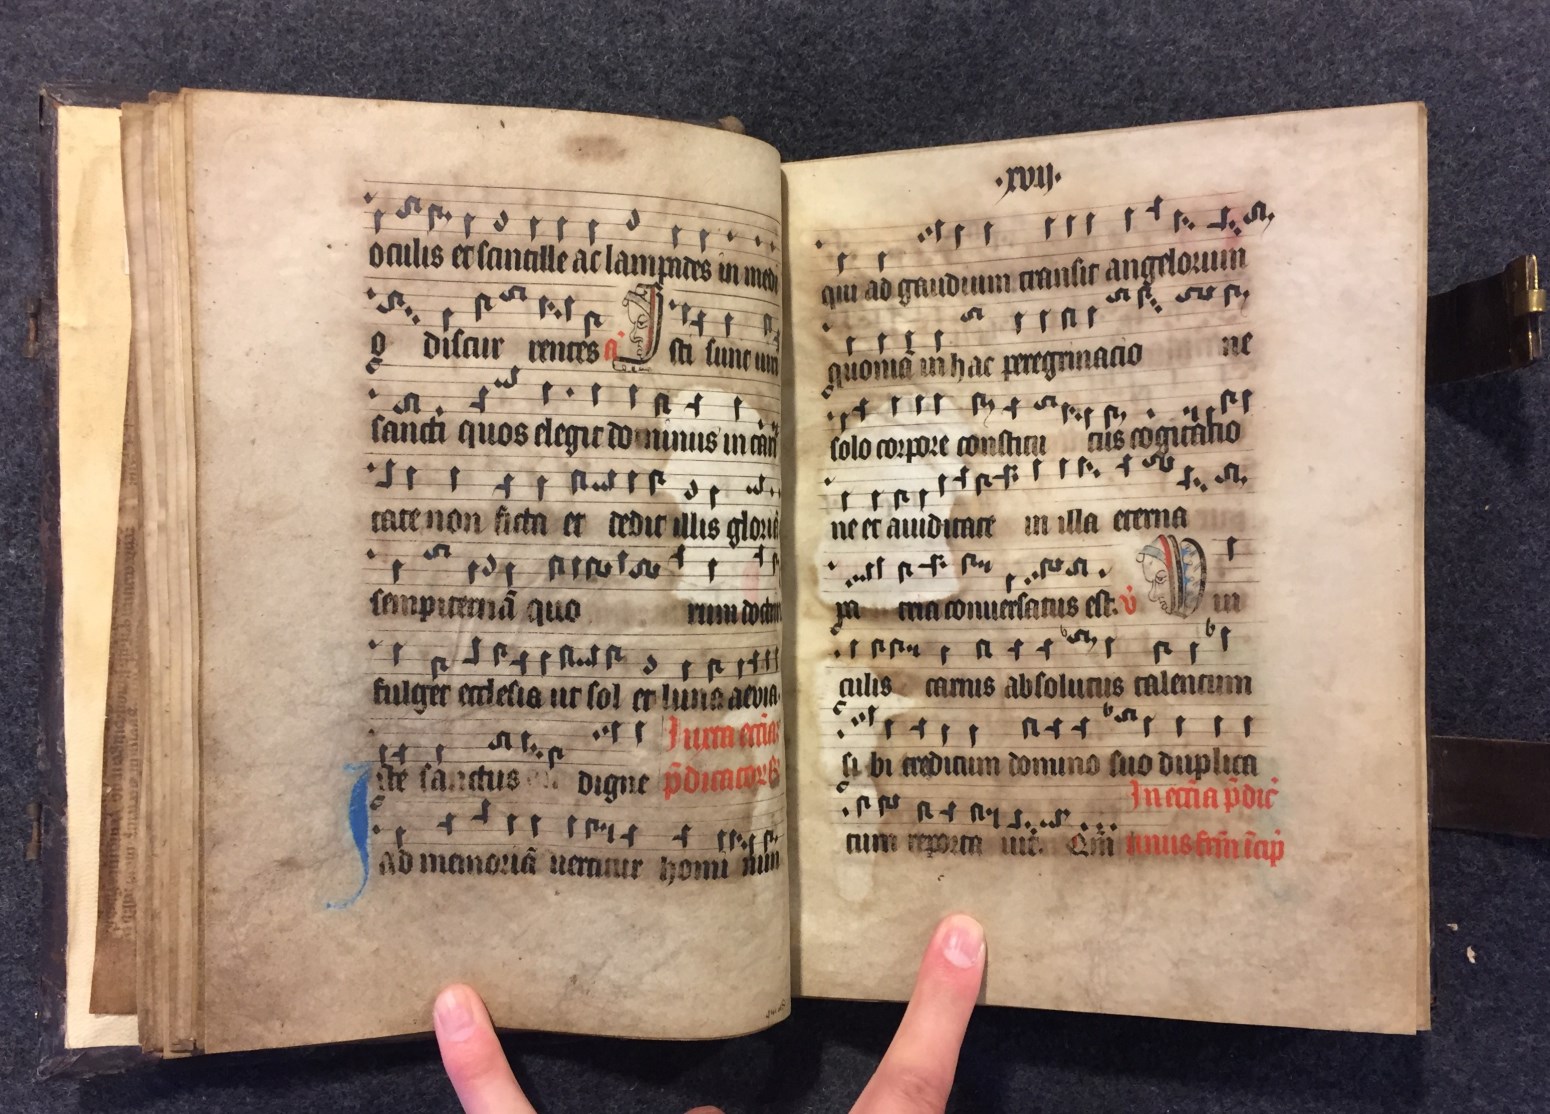 oculis et scintille ac lampades in medi
o discur rentes a Isti sunt uiri
sancti quos elegit dominus in cari
tate non ficta et dedit illis gloriā
sempiternā quo rum doctri
fulget ecclesia ut sol et luna aevia.
Iuxta
Iste sanctus digne p̄dicator
ad memoriā uertitur homi num
·xvij·
qui ad gaudium transit angelorum
quoniā in hac peregrinatio ne
solo corpore constitu tus cogitatio
ne et auiditate in illa eterna
pa tria conuersatus est. v̇ Uin
culis carnis absolutus talentum
si bi creditum domino suo duplica
In p̄dic
tum reporta uit. Qm̄ unius